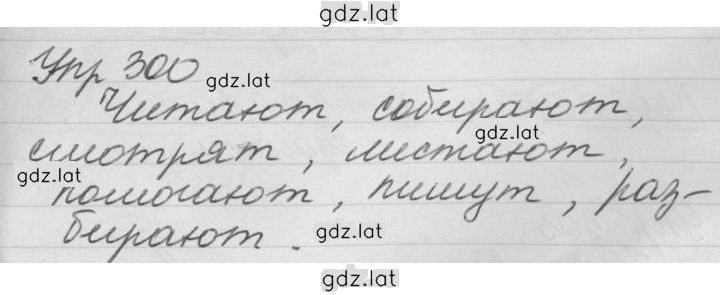 gdz.lat
Упр 300
gdz.lat
Читают, собирают,
gdz.lat
смотрят, листают,
gdz.lat
помогают, пишут, раз-
бирают.
gdz.lat
gdz.lat